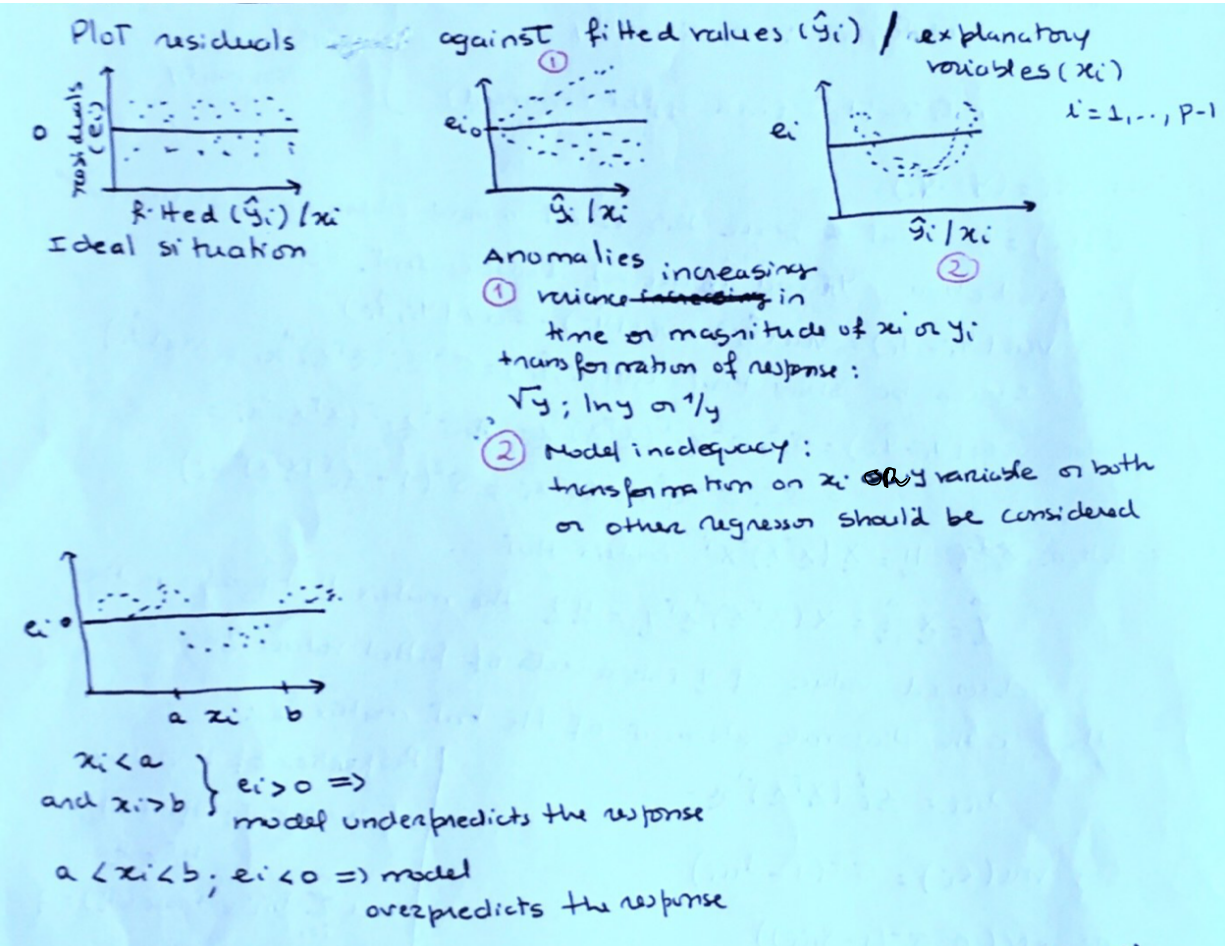 Plot residuals against fitted values (ŷi) / explanatory
variables (xi)
i = 1, .., p-1
①
0
residuals
(ei)
fitted (ŷi) / xi
Ideal situation
ei 0
ŷi / xi
ei
ŷi / xi
②
Anomalies
increasing
① variance increasing in
time or magnitude of xi or yi
transformation of response:
√y ; ln y or 1/y
② Model inadequacy:
transformation on xi or y variable or both
or other regressor should be considered
ei 0
a xi b
xi < a
and xi > b } ei > 0 =>
model underpredicts the response
a < xi < b ; ei < 0 => model
overpredicts the response